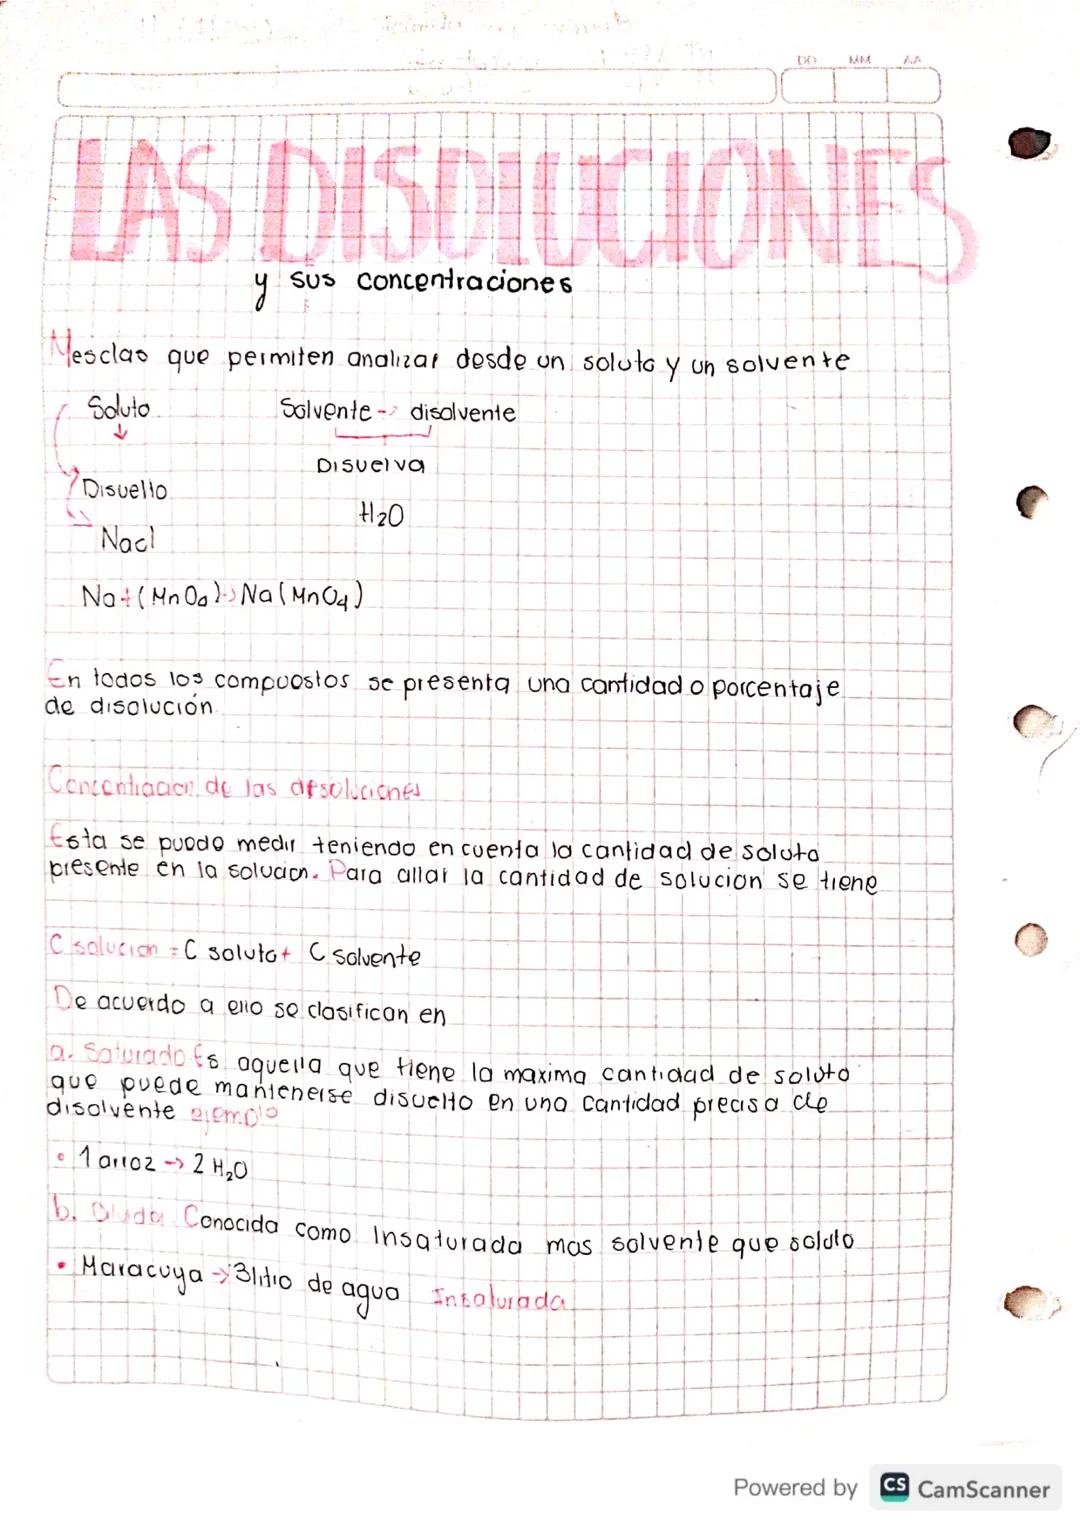 DD MM AA
LAS DISOLUCIONES
y sus concentraciones
Mesclas que permiten analizar desde un soluto y un solvente
Soluto Solvente -> disolvente
Disuelva
Disuelto
H₂O
Nacl
Na+(MnO₄)->Na(MnO₄)
En todos los compuestos se presenta una cantidad o porcentaje
de disolución
Concentracion de las disoluciones
Esta se puede medir teniendo en cuenta la cantidad de soluto
presente en la solucion. Para allar la cantidad de solucion se tiene
C solucion = C soluto+ C solvente
De acuerdo a ello se clasifican en
a. Saturado Es aquella que tiene la maxima cantidad de soluto
que puede mantenerse disuelto en una cantidad precisa de
disolvente ejemplo
• 1 arroz -> 2 H₂O
b. Diluida Conocida como Insaturada mas solvente que soluto
• Maracuya -> 3litro de agua Insaturada
Powered by CS CamScanner